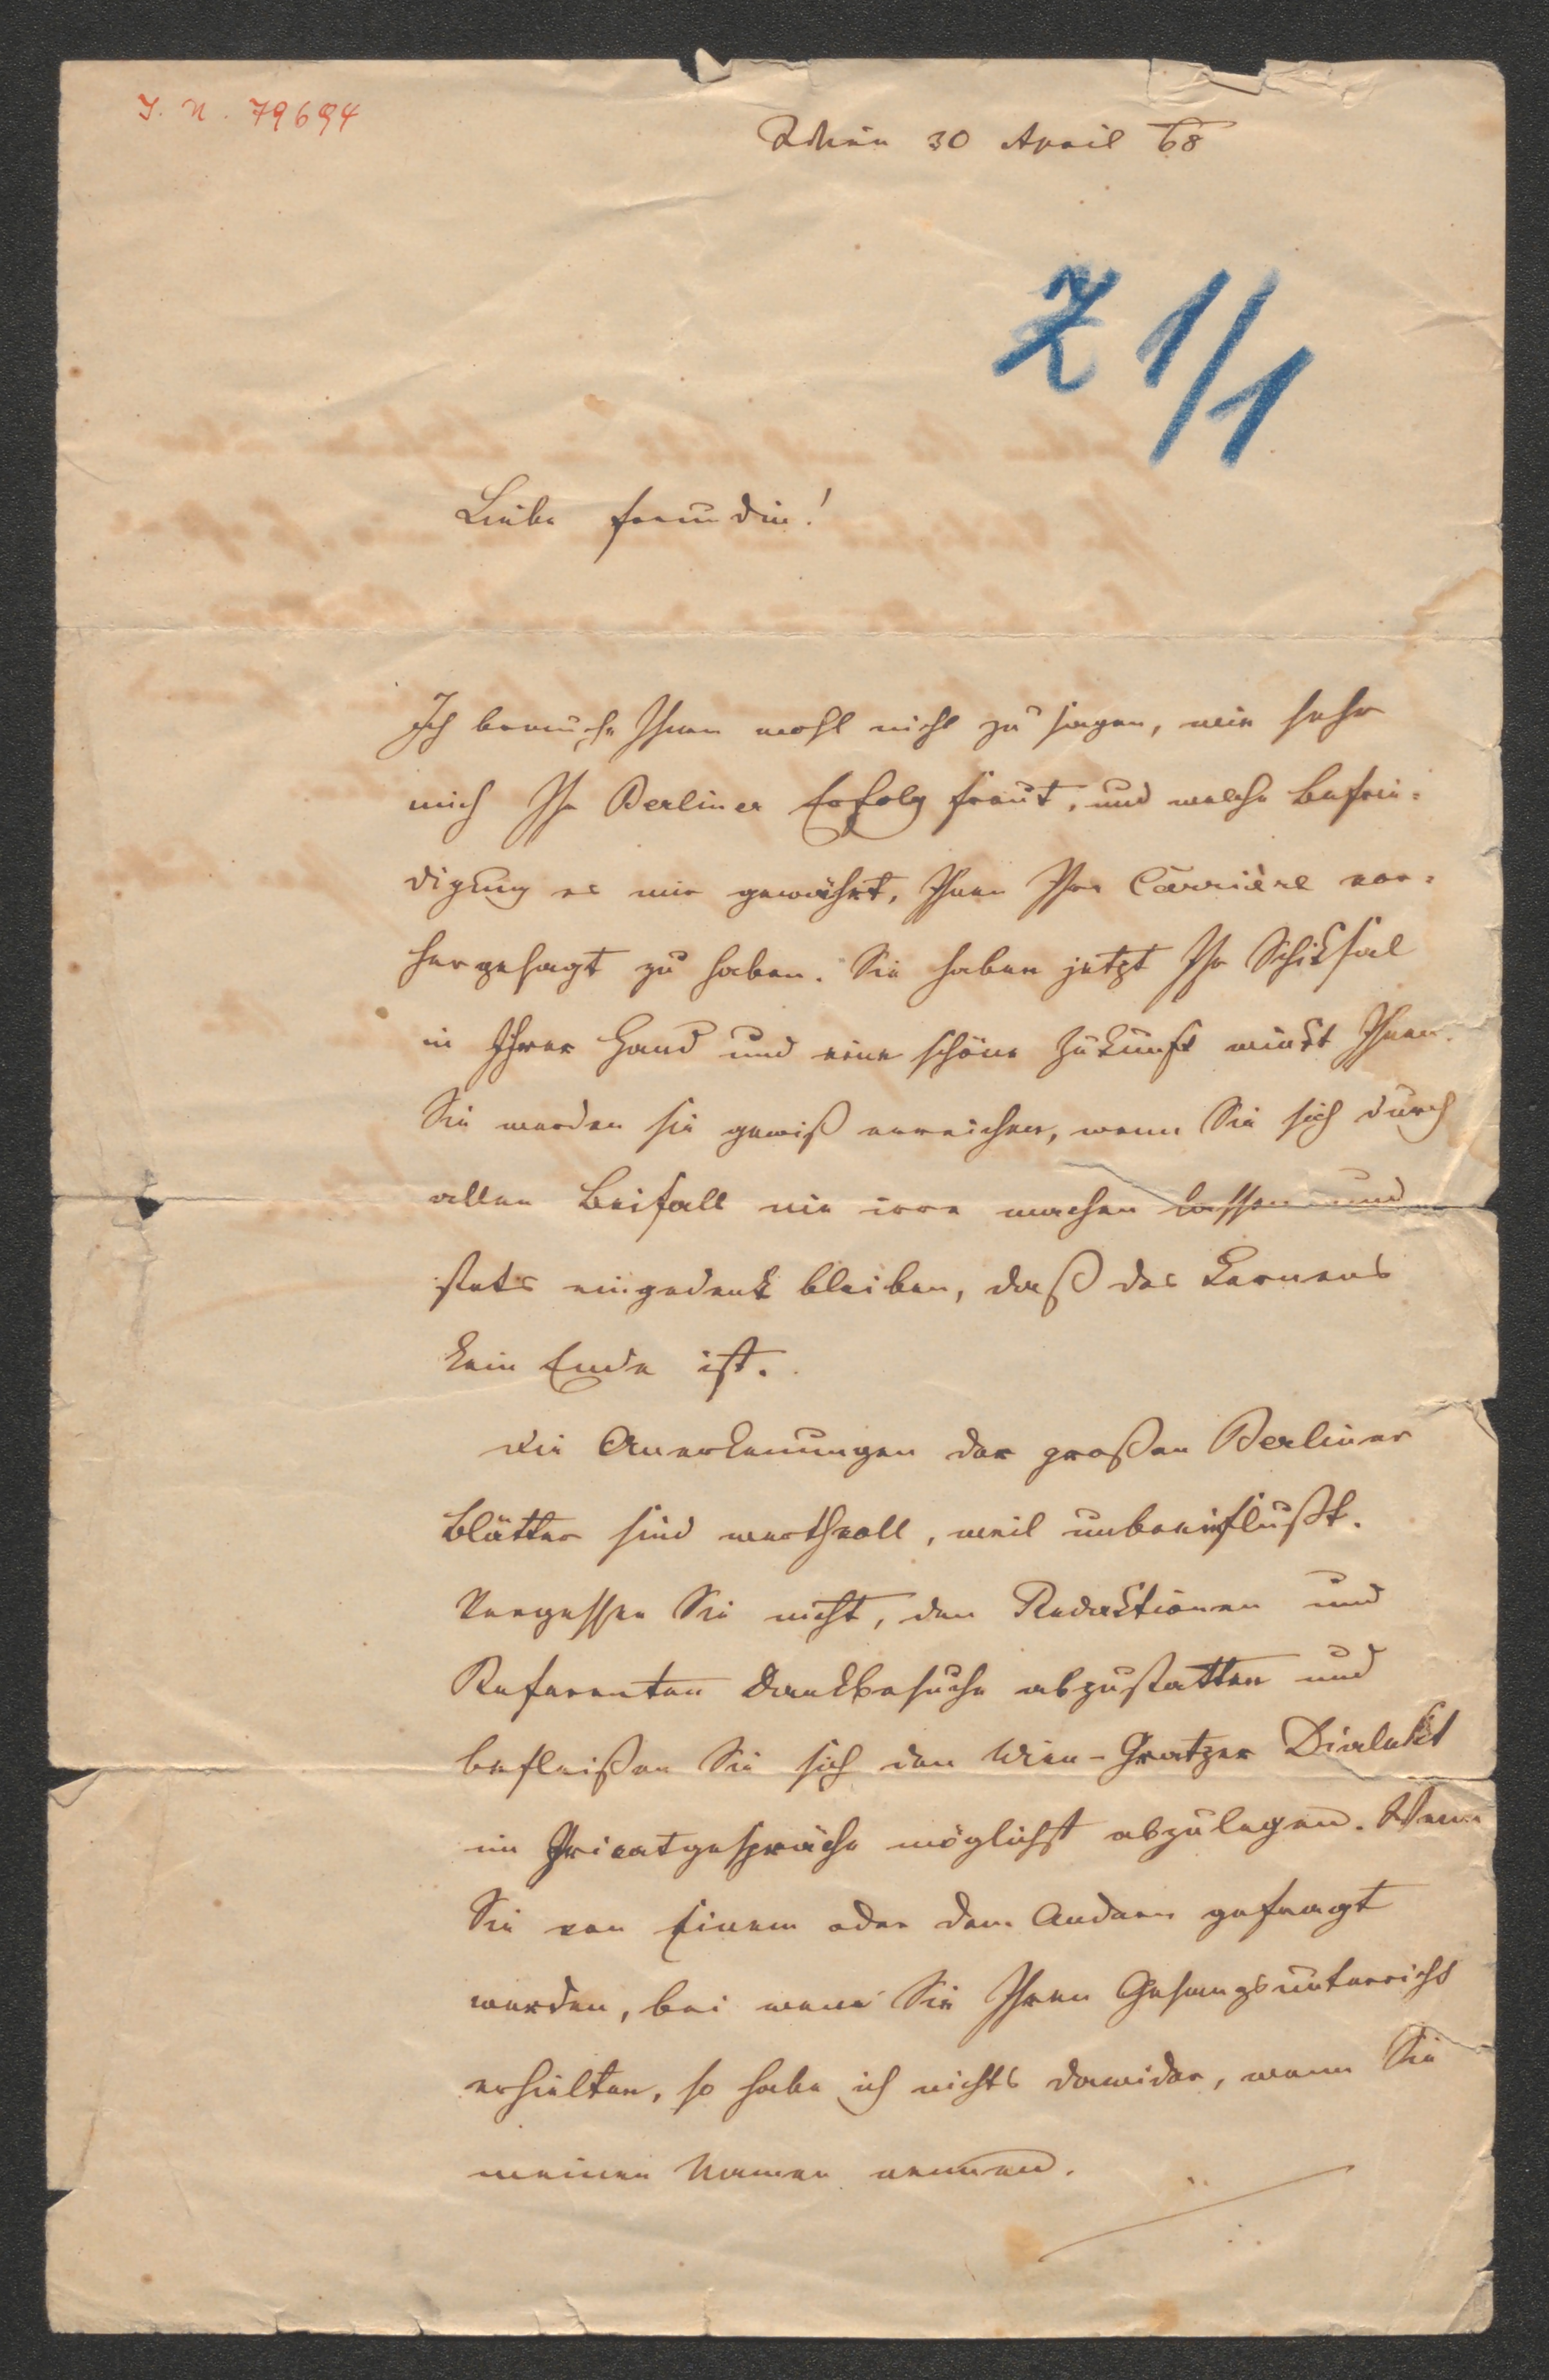 J. N. 79694
Wien 30 April 68
Z 1/1
Liebe Freundin!
Ich brauche Ihnen wohl nicht zu sagen, wie sehr
mich Ihr Berliner Erfolg freut, und welche Befrie-
digung es mir gewährt, Ihnen Ihre Carrière vor-
hergesagt zu haben. Sie haben jetzt Ihr Schiksal
in Ihrer Hand und eine schöne Zukunft winkt Ihnen.
Sie werden sie gewiß erreichen, wenn Sie sich durch
allen Beifall nie irre machen lassen und
stets eingedenk bleiben, daß des Lernens
kein Ende ist.
Die Anerkennungen der großen Berliner
Blätter sind werthvoll, weil unbeeinflußt.
Vergessen Sie nicht, den Redaktionen und
Referenten Dankbesuche abzustatten und
befleißen Sie sich den Wien-Gratzer Dialekt
im Privatgespräche möglichst abzulegen. Wenn
Sie von Einem oder dem Andern gefragt
werden, bei wem Sie Ihren Gesangsunterricht
erhielten, so habe ich nichts dawider, wenn Sie
meinen Namen nennen.